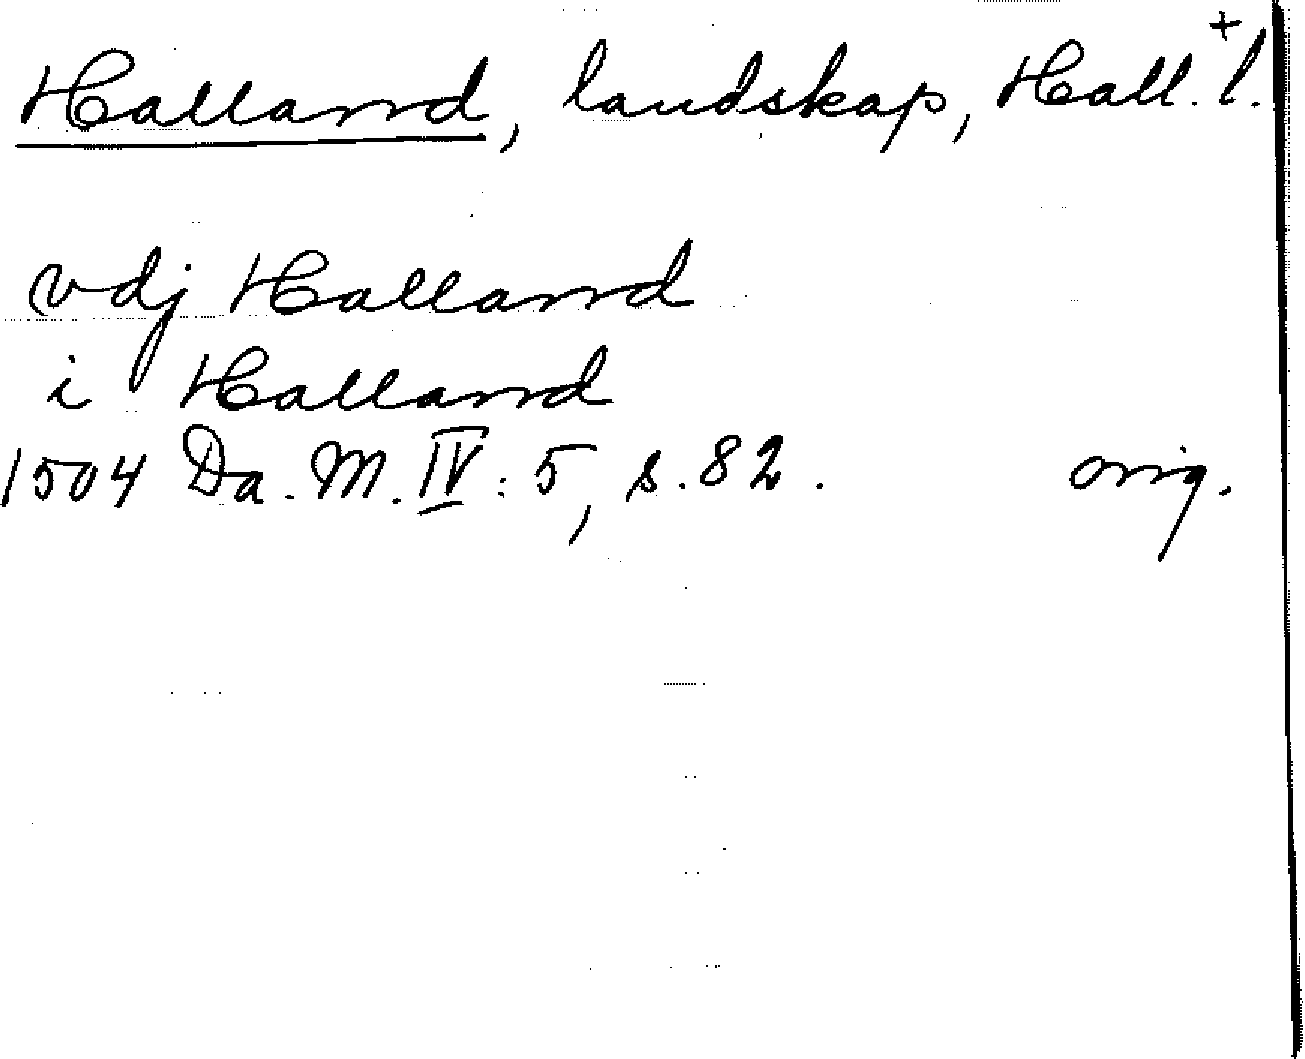 Halland, landskap, Hall. l. +
vdj Halland
i Halland
1504 Da. M. IV: 5, s. 82. orig.